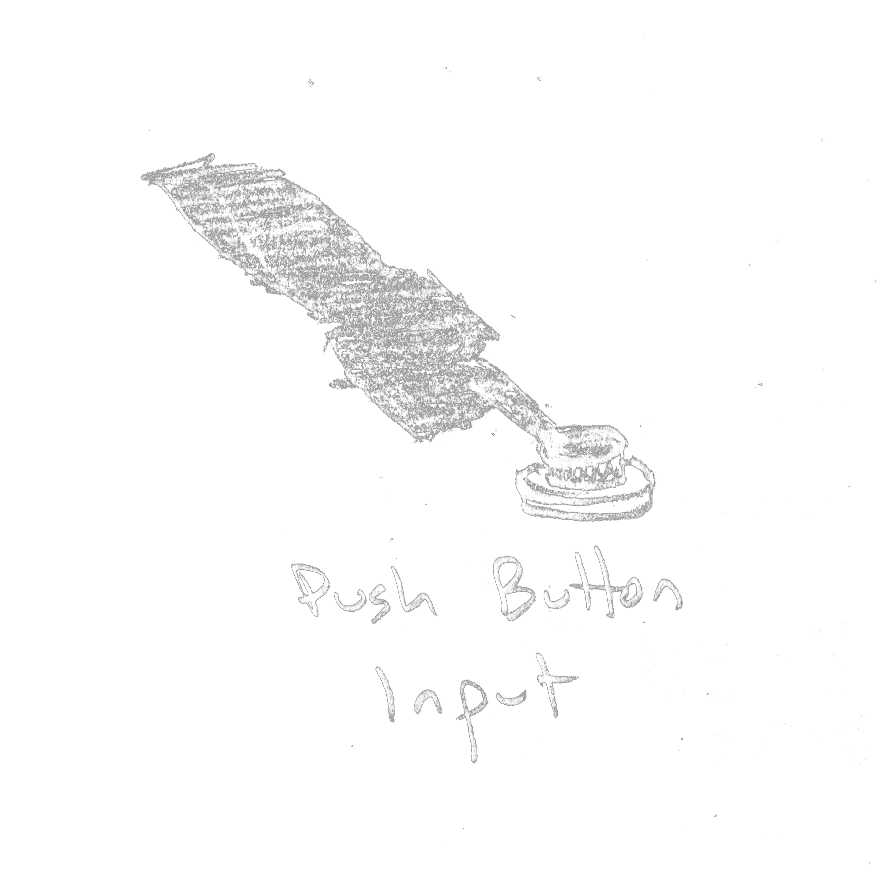 Push Button
Input